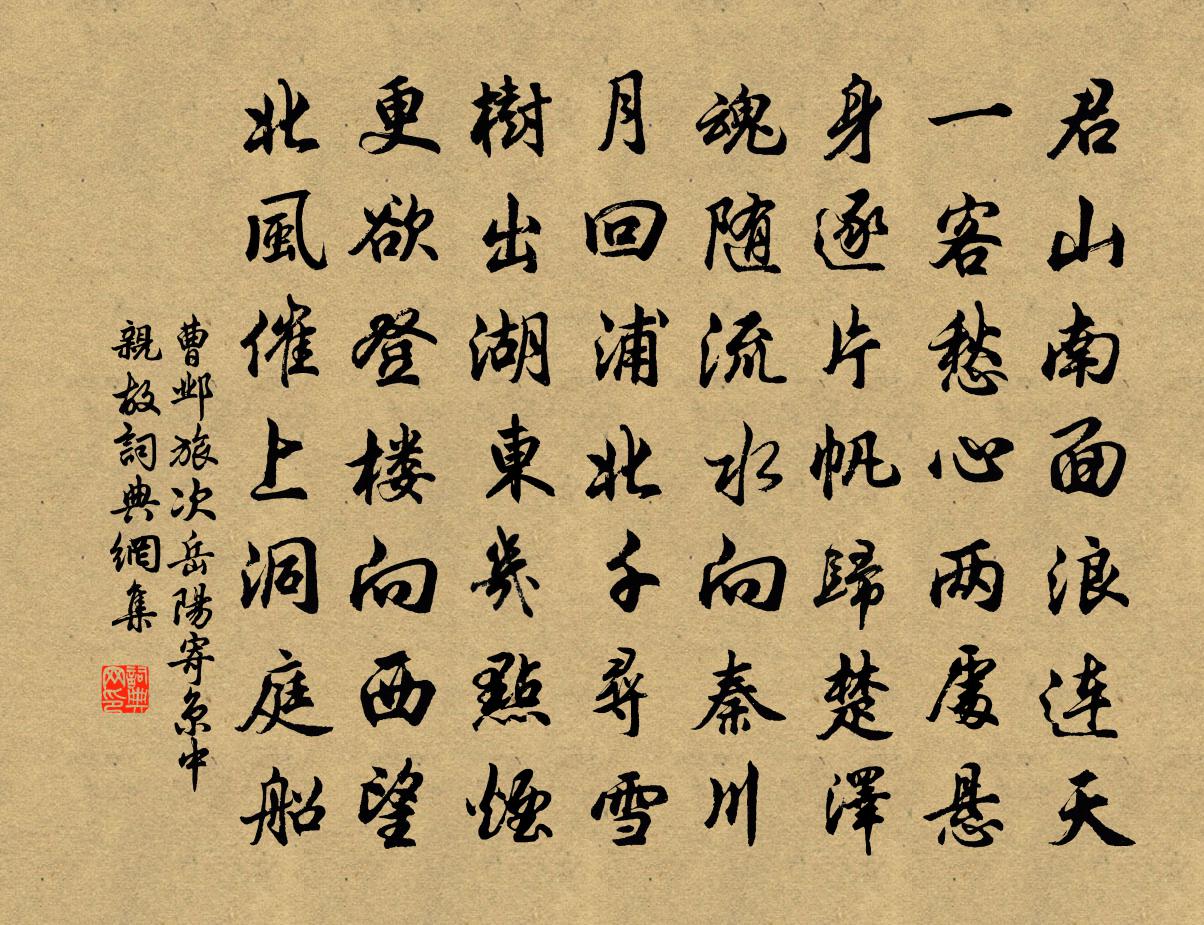 君山南面浪连天
一客愁心两處悬
身逐片帆歸楚澤
魂随流水向秦川
月回浦北千尋雪
樹出湖東幾點煙
更欲登楼向西望
北風催上洞庭船
曹邺旅次岳陽寄京中
親故詞典網集
詞典网印